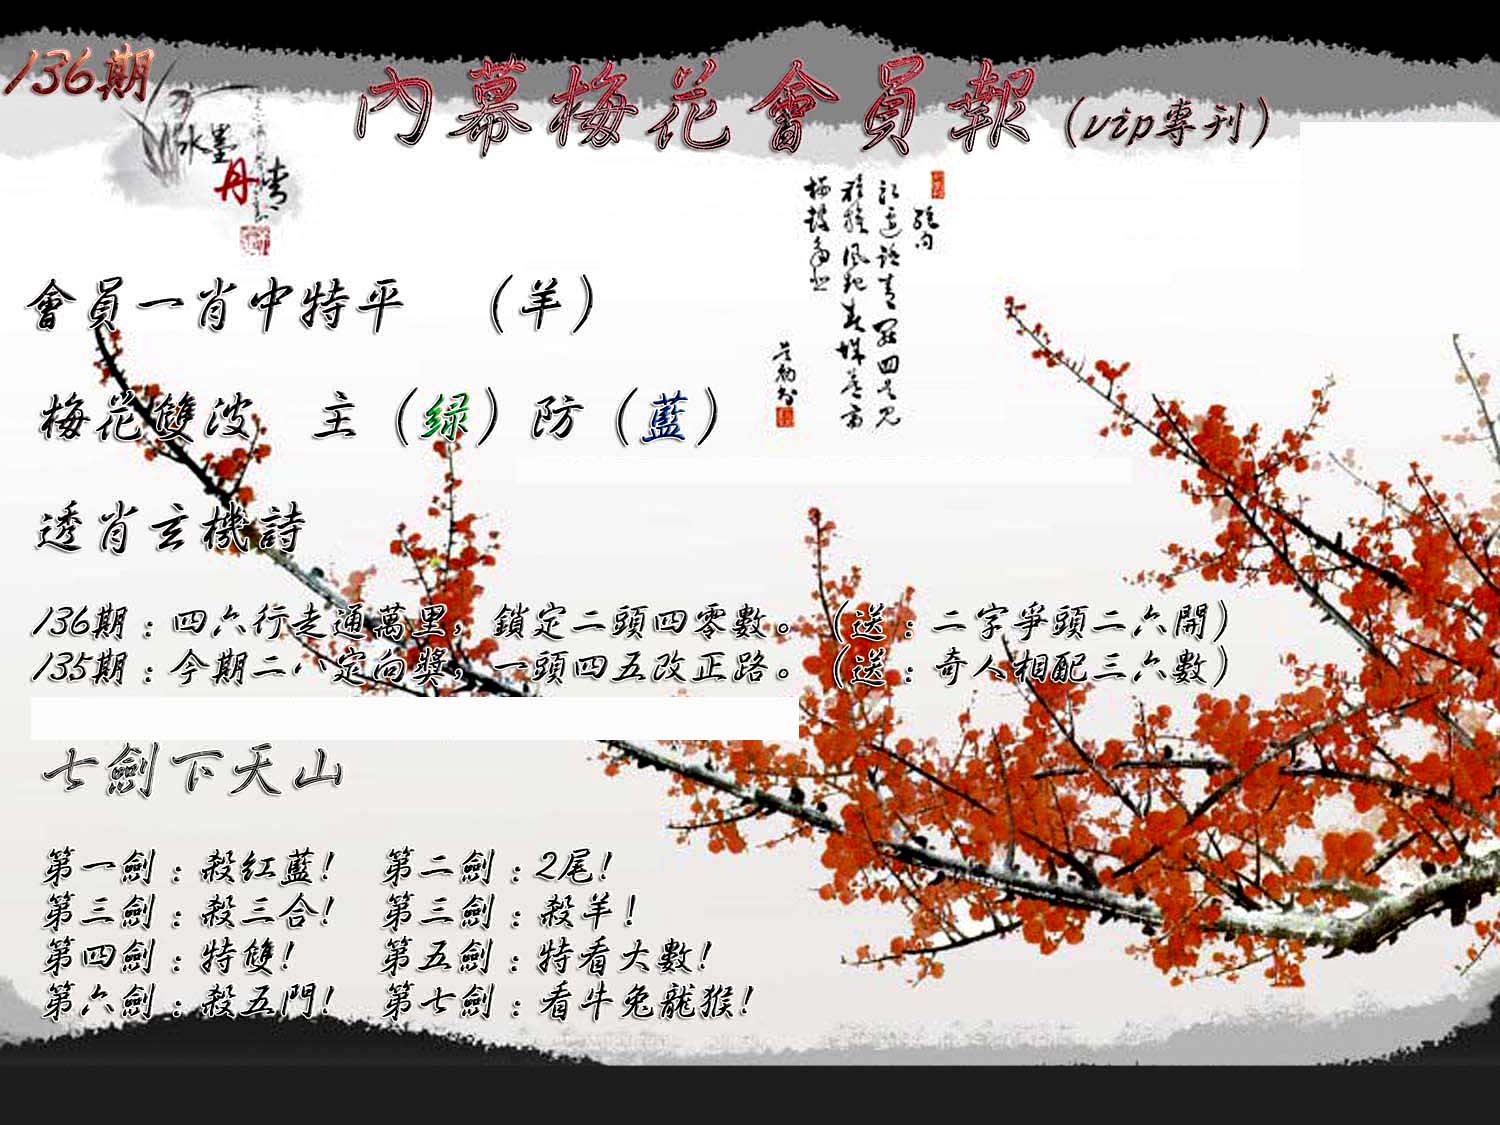 136期
內幕梅花會員報（vip專刊）
水墨
丹青
會員一肖中特平　（羊）
梅花雙波　主（綠）防（藍）
透肖玄機詩
136期：四六行走通萬里，鎖定二頭四零數。（送：二字爭頭二六開）
135期：今期二八定向獎，一頭四五改正路。（送：奇人相配三六數）
七劍下天山
第一劍：殺紅藍！　第二劍：2尾！
第三劍：殺三合！　第三劍：殺羊！
第四劍：特雙！　第五劍：特看大數！
第六劍：殺五門！　第七劍：看牛兔龍猴！